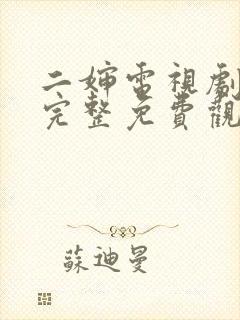 二婶電視劇
完整免費觀
蘇迪曼